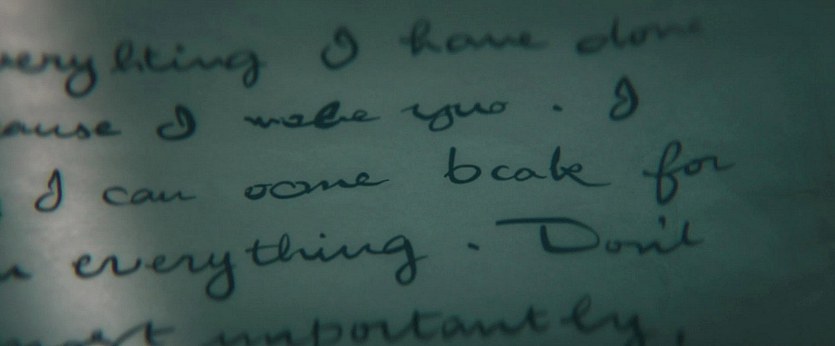 everything I have done
ause I make you . I
I can come back for
everything . Don't
most importantly,